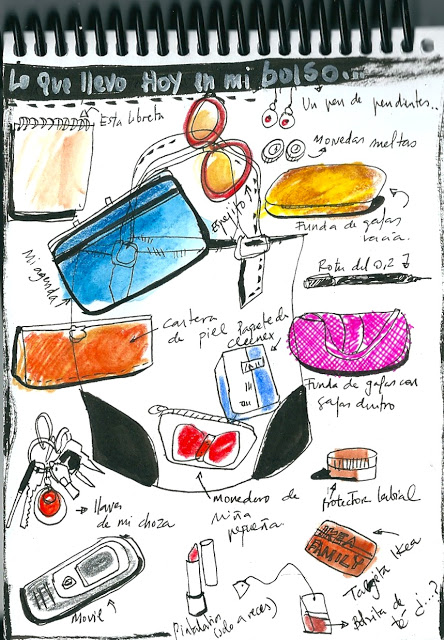 Lo que llevo Hoy en mi bolso...
Esta libreta
Un par de pendientes..
Monedas sueltas
Espejito
Funda de gafas
vacía.
Mi agenda
Rotu del 0,2 7
Cartera
de piel
Paquete de
cleenex
Funda de gafas con
gafas dentro
llaves
de mi choza
monedero de
niña
pequeña.
Protector labial
IKEA
FAMILY
Tarjeta Ikea
Movil
Pintalabios
(solo a veces)
Bolsita de
té